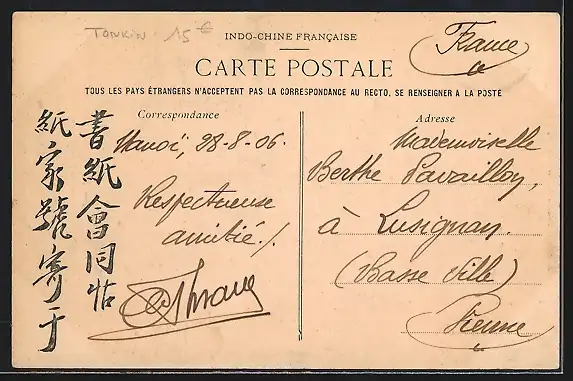 TONKIN 15 €
INDO-CHINE FRANÇAISE
France
CARTE POSTALE
TOUS LES PAYS ÉTRANGERS N'ACCEPTENT PAS LA CORRESPONDANCE AU RECTO. SE RENSEIGNER A LA POSTE
Correspondance
Hanoï, 28-8-06.
Respectueuse
amitié./.
書紙會同帖
紙家號寄于
Adresse
Mademoiselle
Berthe Pavaillon,
à Lusignan.
(Basse Ville)
Vienne